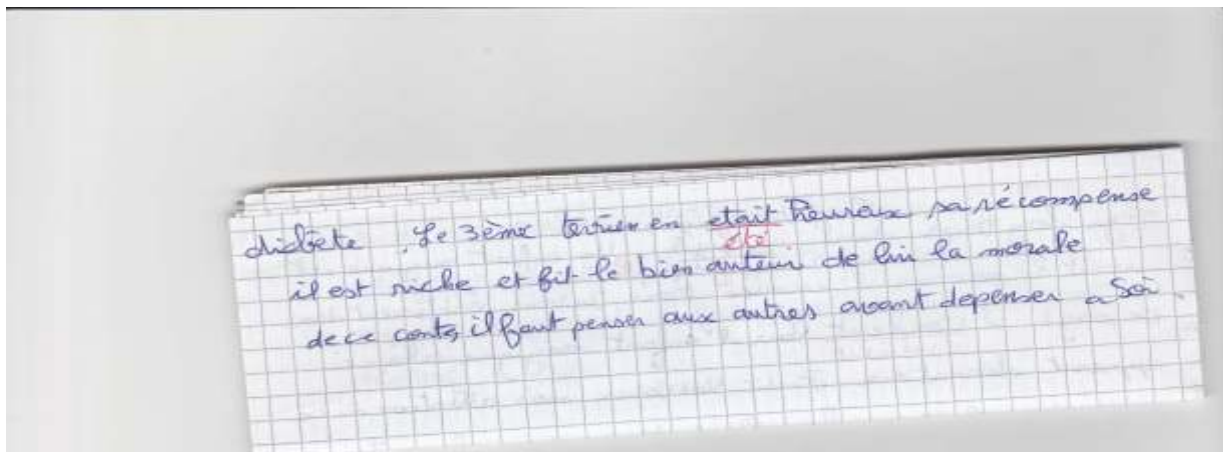 diabète . Le 3ème terrien en etait heureux sa récompense
été
il est riche et fit le bien auteur de lui la morale
de ce conte, il faut penser aux autres avant depenser a Soi